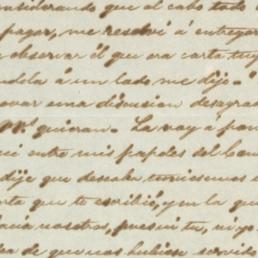 nsiderando que al cabo todo
pagar, me resolví á entregar
observar él que era carta tuy
ndola á un lado me dijo."
ovar una discusion desagra
V.s quieran. La voy á pon
entre mis papeles del Con
dije que deseaba tuviesemos
rta que te escribió, y en la que
acia nosotros, pues ni tu, ni yo
de que nos hubiese servido